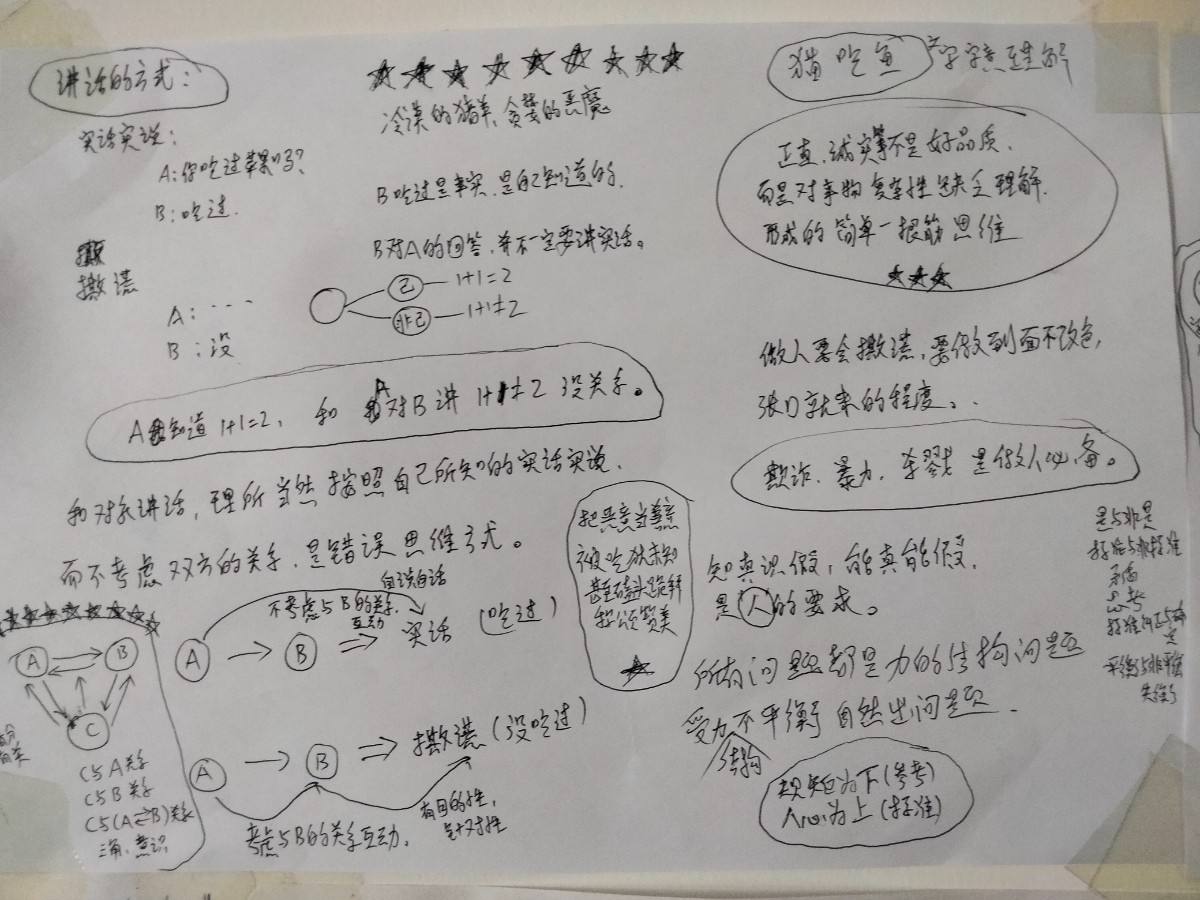 讲话的方式：
实话实说：
A：你吃过苹果吗？
B：吃过.
撒谎
A：...
B：没
冷漠的猪羊，贪婪的恶魔
B吃过是事实，是自己知道的.
B对A的回答，并不一定要讲实话。
己 1+1=2
非己 1+1≠2
A知道1+1=2，和A对B讲1+1≠2没关系。
和对求讲话，理所当然按照自己所知的实话实说.
而不考虑双方的关系，是错误思维方式。
自说自话
不考虑与B的关系
互动
A B 实话（吃过）
A B 撒谎（没吃过）
考虑与B的关系互动.
有目的性，
针对性
A B
C
C与A关系
C与B关系
C与(A⇌B)关系
三角，意识
把恶意当善意
被吃犹未知
甚至磕头跪拜
称颂赞美
猫吃鱼 字字意理解
正直、诚实等不是好品质.
而是对事物复杂性缺乏理解.
形成的简单一根筋思维
做人要会撒谎，要做到面不改色，
张口就来的程度..
欺诈、暴力，杀戮是做人必备。
知真识假，能真能假.
是人的要求。
所有问题都是力的结构问题
受力不平衡自然出问题.
结构
规矩为下（参考）
人心为上（标准）
是与非是
标准与非标准
矛盾
思考
平衡与非平衡
失衡